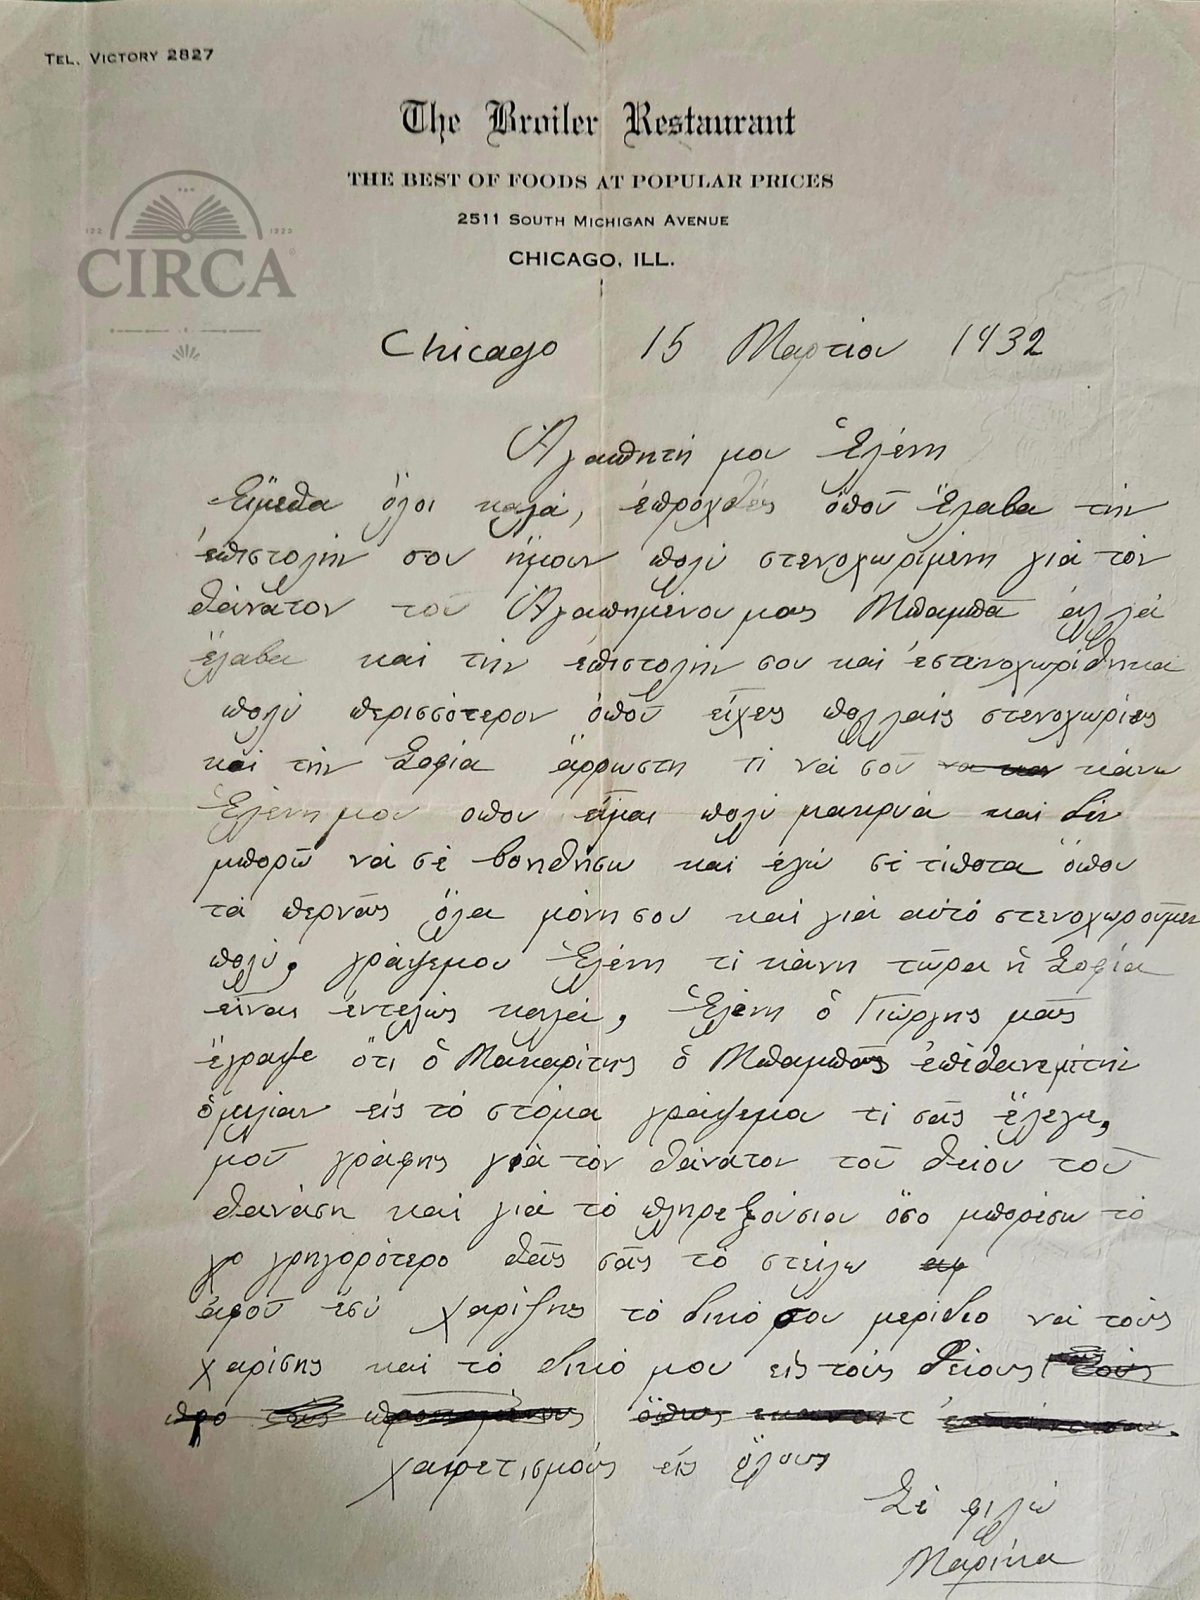 TEL. VICTORY 2827
The Broiler Restaurant
THE BEST OF FOODS AT POPULAR PRICES
2511 SOUTH MICHIGAN AVENUE
CHICAGO, ILL.
CIRCA
Chicago 15 Μαρτίου 1932
Ἀγαπητή μου Ἑλένη
Εἴμεθα ὅλοι καλά, ἐπροχθές ὁποῦ ἔλαβα τήν
ἐπιστολήν σου ἤμουν πολύ στενοχωριμένη γιά τόν
θάνατον τοῦ Ἀγαπημένου μας Μπαμπᾶ ἀλλά
ἔλαβα καί τήν ἐπιστολήν σου καί ἐστενοχωρίθηκα
πολύ περισσότερον ὁποῦ εἶχες πολλαίς στενοχωρίες
καί τήν Σοφία ἄρρωστη τί νά σοῦ κάνω
Ἑλένη μου οπου εἶμαι πολύ μακρυά καί δέν
μπορῶ νά σέ βοηθήσω καί ἐγώ σέ τίποτα ὁπου
τά περνᾶς ὅλα μόνη σου καί γιά αὐτό στενοχωροῦμαι
πολύ, γράψεμου Ἑλένη τί κάνη τῶρα ἡ Σοφία
εἶναι ἐντελῶς καλά, Ἑλένη ὁ Γιώργης μᾶς
ἔγραψε ὅτι ὁ Μακαρίτης ὁ Μπαμπᾶς ἐπέθανεμέτήν
ὁμιλίαν εἰς τό στόμα γράψεμα τί σᾶς ἔλεγε,
μοῦ γράφης γιά τόν θάνατον τοῦ θείου τοῦ
θανάση καί γιά τό πληρεξούσιον ὅσο μπορέσω τό
γρηγορότερο θᾶς σᾶς τό στείλω
ἀφοῦ ἐσύ χαρίζης τό δικό σου μερίδιο νά τούς
χαρίσης καί τό δικό μου εἰς τούς θείους
χαιρετισμούς εἰς ὅλους
Σέ φιλῶ
Μαρίκα